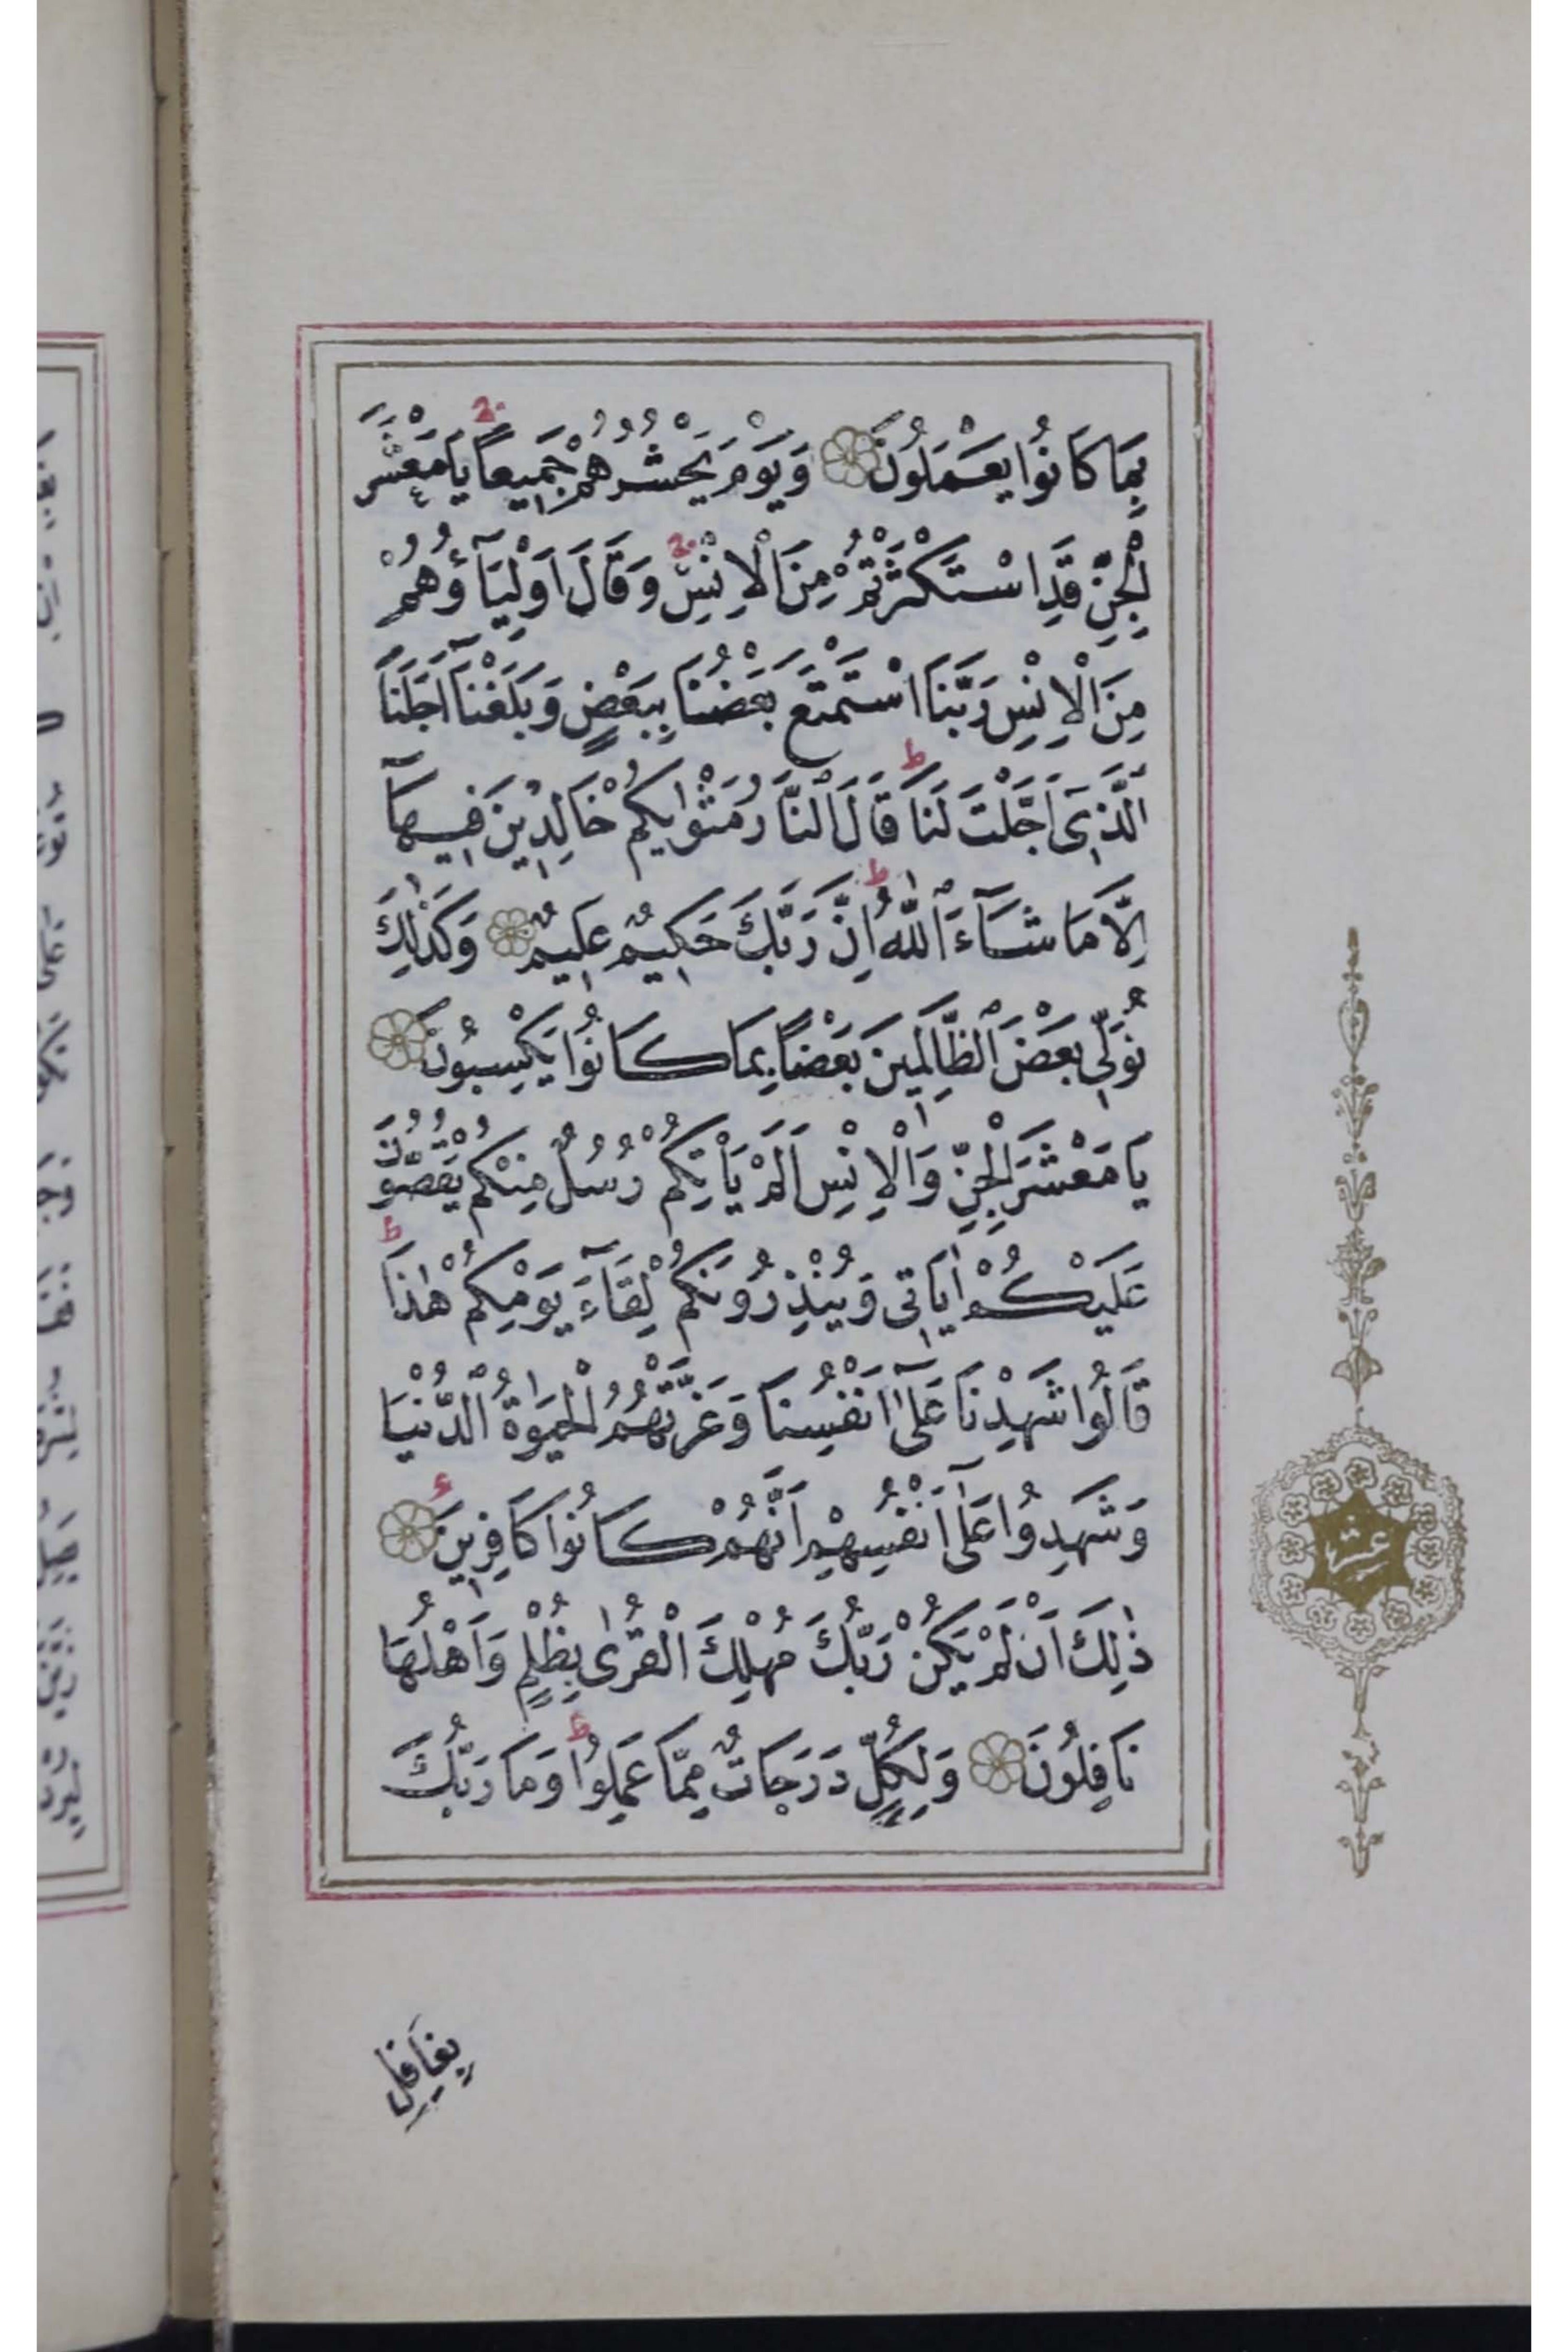 بِمَا كَانُوا يَعْمَلُونَ وَيَوْمَ يَحْشُرُهُمْ جَمِيعًا يَا مَعْشَرَ
الْجِنِّ قَدِ اسْتَكْثَرْتُمْ مِنَ الْاِنْسِ وَقَالَ اَوْلِيَآؤُهُمْ
مِنَ الْاِنْسِ رَبَّنَا اسْتَمْتَعَ بَعْضُنَا بِبَعْضٍ وَبَلَغْنَآ اَجَلَنَا
الَّذِى اَجَّلْتَ لَنَا قَالَ النَّارُ مَثْوٰيكُمْ خَالِدِينَ فِيهَآ
اِلَّا مَا شَآءَ اللّٰهُ اِنَّ رَبَّكَ حَكِيمٌ عَلِيمٌ وَكَذٰلِكَ
نُوَلِّى بَعْضَ الظَّالِمِينَ بَعْضًا بِمَا كَانُوا يَكْسِبُونَ
يَا مَعْشَرَ الْجِنِّ وَالْاِنْسِ اَلَمْ يَأْتِكُمْ رُسُلٌ مِنْكُمْ يَقُصُّونَ
عَلَيْكُمْ اٰيَاتِى وَيُنْذِرُونَكُمْ لِقَآءَ يَوْمِكُمْ هٰذَا
قَالُوا شَهِدْنَا عَلٰٓى اَنْفُسِنَا وَغَرَّتْهُمُ الْحَيٰوةُ الدُّنْيَا
وَشَهِدُوا عَلٰٓى اَنْفُسِهِمْ اَنَّهُمْ كَانُوا كَافِرِينَ
ذٰلِكَ اَنْ لَمْ يَكُنْ رَبُّكَ مُهْلِكَ الْقُرٰى بِظُلْمٍ وَاَهْلُهَا
غَافِلُونَ وَلِكُلٍّ دَرَجَاتٌ مِمَّا عَمِلُوا وَمَا رَبُّكَ
بِغَافِلٍ